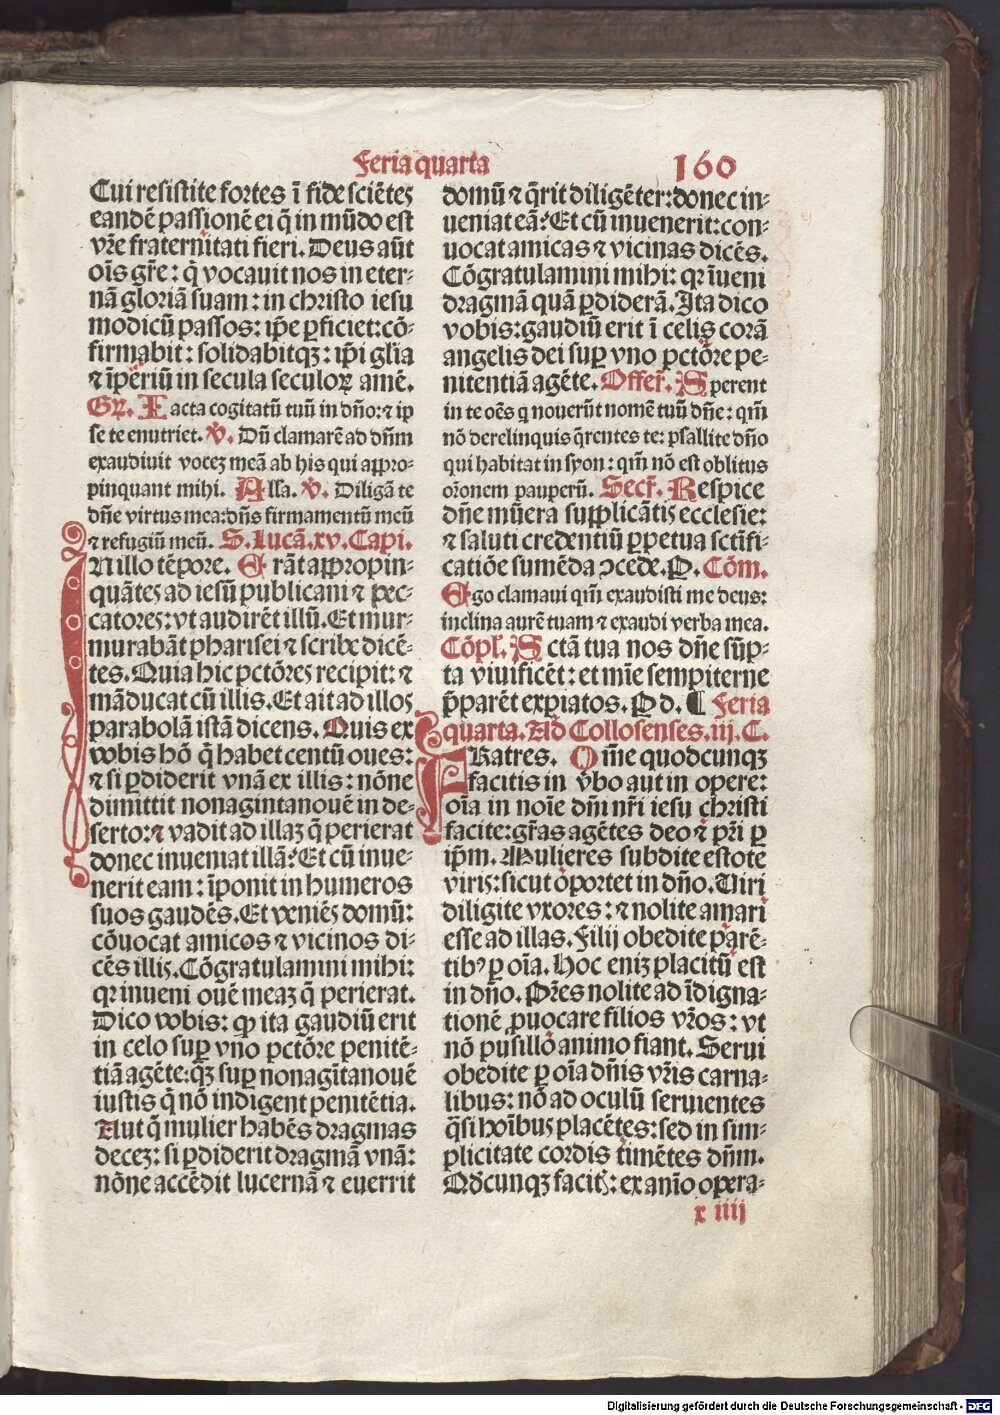 Feria quarta 160
Cui resistite fortes ī fide sciētes
eandē passionē ei q̄ in mūdo est
vr̄e fraternitati fieri. Deus aūt
oīs gr̄e: q̄ vocauit nos in eter⸗
nā gloriā suam: in christo iesu
modicū passos: ip̄e ꝑficiet: cō⸗
firmabit: solidabitqꝫ: ip̄i gl̄ia
⁊ īperiū in secula seculoꝝ amē.
Gr̄. Iacta cogitatū tuū in dn̄o: ⁊ ip
se te enutriet. v̄. Dū clamarē ad dn̄m
exaudiuit voceꝫ meā ab his qui appro⸗
pinquant mihi. Alla. v̄. Diligā te
dn̄e virtus mea: dn̄s firmamentū meū
⁊ refugiū meū. S. Lucā. xv. Capi.
IN illo tēpore. Erāt appropin⸗
quātes ad iesū publicani ⁊ pec⸗
catores: vt audirēt illū. Et mur⸗
murabāt pharisei ⁊ scribe dicē⸗
tes. Quia hic pctōres recipit: ⁊
māducat cū illis. Et ait ad illos
parabolā istā dicens. Quis ex
vobis hō q̄ habet centū oues:
⁊ si ꝑdiderit vnā ex illis: nōne
dimittit nonagintanouē in de⸗
serto: ⁊ vadit ad illaꝫ q̄ perierat
donec inueniat illā? Et cū inue⸗
nerit eam: īponit in humeros
suos gaudēs. Et veniēs domū:
cōuocat amicos ⁊ vicinos di⸗
cēs illis. Cōgratulamini mihi:
qꝛ inueni ouē meaꝫ q̄ perierat.
Dico vobis: ꝙ ita gaudiū erit
in celo suꝑ vno pctōre penitē⸗
tiā agēte: qꝫ suꝑ nonagītanouē
iustis q̄ nō indigent penitētia.
Aut q̄ mulier habēs dragmas
deceꝫ: si ꝑdiderit dragmā vnā:
nōne accēdit lucernā ⁊ euerrit
domū ⁊ q̄rit diligēter: donec in⸗
ueniat eā? Et cū inuenerit: con⸗
uocat amicas ⁊ vicinas dicēs.
Cōgratulamini mihi: qꝛ īueni
dragmā quā ꝑdiderā. Ita dico
vobis: gaudiū erit ī celis corā
angelis dei suꝑ vno pctōre pe⸗
nitentiā agēte. Offer̄. Sperent
in te oēs q nouerūt nomē tuū dn̄e: qm̄
nō derelinquis q̄rentes te: psallite dn̄o
qui habitat in syon: qm̄ nō est oblitus
or̄onem pauperū. Secr̄. Respice
dn̄e mūera supplicātis ecclesie:
⁊ saluti credentiū ꝑpetua sctīfi⸗
catiōe sumēda ↄcede. P. Cōm.
Ego clamaui qm̄ exaudisti me deus:
inclina aurē tuam ⁊ exaudi verba mea.
Cōpl̄. Sctā tua nos dn̄e sūp⸗
ta viuificēt: et mīe sempiterne
p̄parēt expiatos. P d. ¶ Feria
quarta. Ad Collosenses. iij. C.
FRatres. Om̄e quodcunqꝫ
facitis in v̄bo aut in opere:
oīa in noīe dn̄i nr̄i iesu christi
facite: gr̄as agētes deo ⁊ pr̄i ꝑ
ip̄m. Mulieres subdite estote
viris: sicut oportet in dn̄o. Viri
diligite vxores: ⁊ nolite amari
esse ad illas. Filij obedite parē⸗
tibꝰ ꝑ oīa. Hoc eniꝫ placitū est
in dn̄o. Pr̄es nolite ad īdigna⸗
tionē ꝓuocare filios vr̄os: vt
nō pusillo animo fiant. Serui
obedite ꝑ oīa dn̄is vr̄is carna⸗
libus: nō ad oculū seruientes
q̄si hoībus placētes: sed in sim⸗
plicitate cordis timētes dn̄m.
Qdcunqꝫ facit̄: ex anīo opera⸗
x iiij
Digitalisierung gefördert durch die Deutsche Forschungsgemeinschaft - DFG